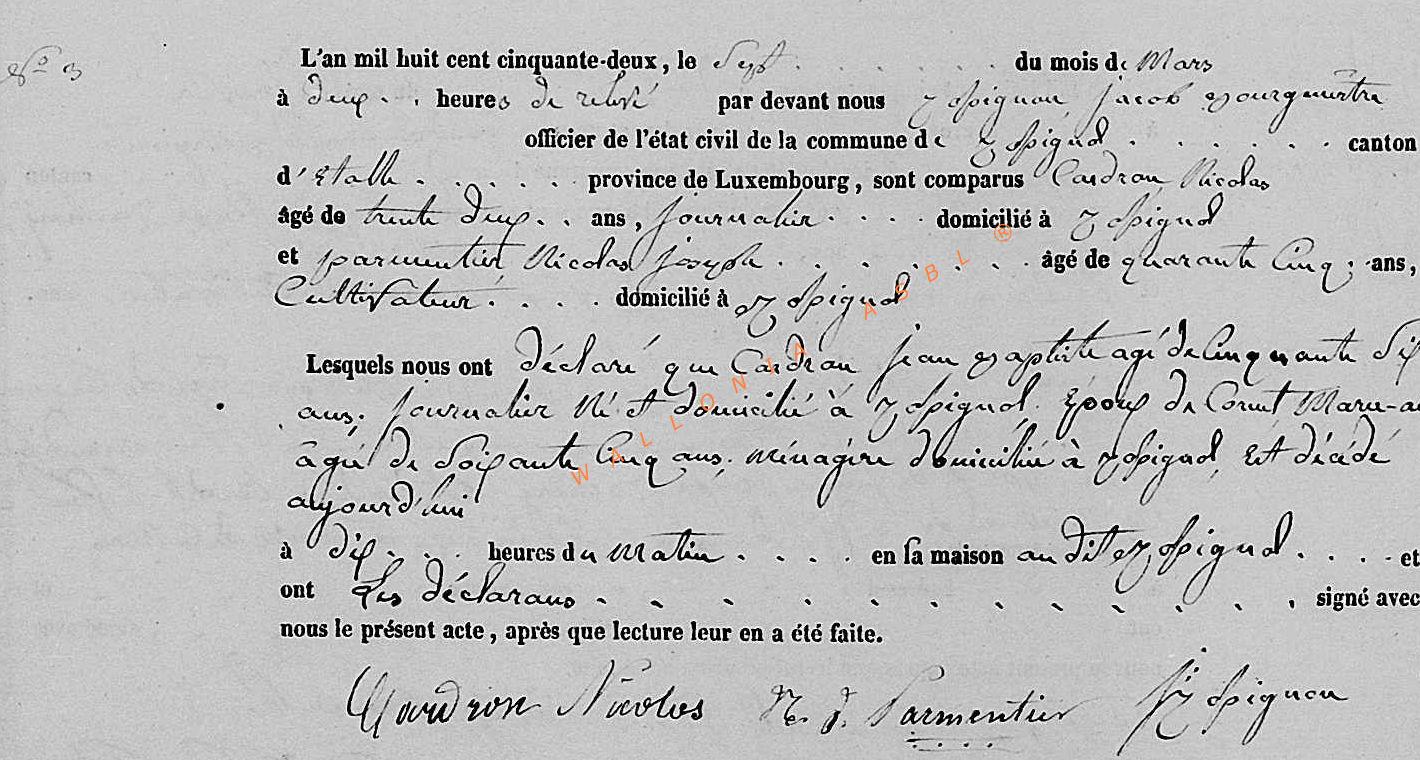 No 3
L'an mil huit cent cinquante-deux, le Sept . . . . . . du mois de Mars
à deux . . heures de relevé par devant nous Rossignon Jacob Bourgmestre
officier de l'état civil de la commune de Rossignol . . . . . . canton
d'Etalle . . . . . province de Luxembourg, sont comparus Cardron Nicolas
âgé de trente deux . . ans, journalier . . . . domicilié à Rossignol
et parmentier Nicolas joseph . . . . . . . âgé de quarante Cinq . ans,
Cultivateur . . . . domicilié à Rossignol
Lesquels nous ont déclaré que Cardron jean Baptiste agé de Cinquante Six
ans, journalier Né et domicilié à Rossignol. Epoux de Cornet Marie-
âgée de Soixante Cinq ans. Ménagère domiciliée à Rossignol, Est décédé
aujourd'hui
à dix . . . heures du Matin . . . . en sa maison audit Rossignol . . . . et
ont Les déclarans . . . . . . . . . . . . signé avec
nous le présent acte, après que lecture leur en a été faite.
Cardron Nicolas N. J. Parmentier J Rossignon
WALLONIA ASBL ®